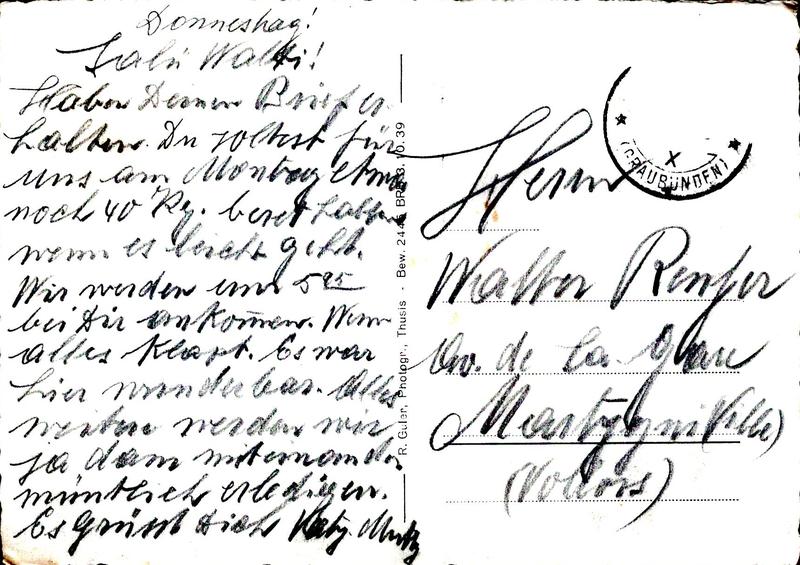 Donneshag!
Salü Walti!
Haben Deinen Brief er
halten. Du soltest für
uns am Montag etwa
noch 40 Kg. bereit halten
wenn es leicht geht.
Wir werden um 5
bei Dir ankommen. Wenn
alles klapt. Es war
hier wunderbar. Alles
weitere werden wir
ja dann miteinander
müntlich erledigen.
Es grüsst Dich
R. Guler, Photogr., Thusis - Bew. 39
(GRAUBÜNDEN)
X
Herrn
Walter Renfer
Av. de la Gare
Martygni (Ville)